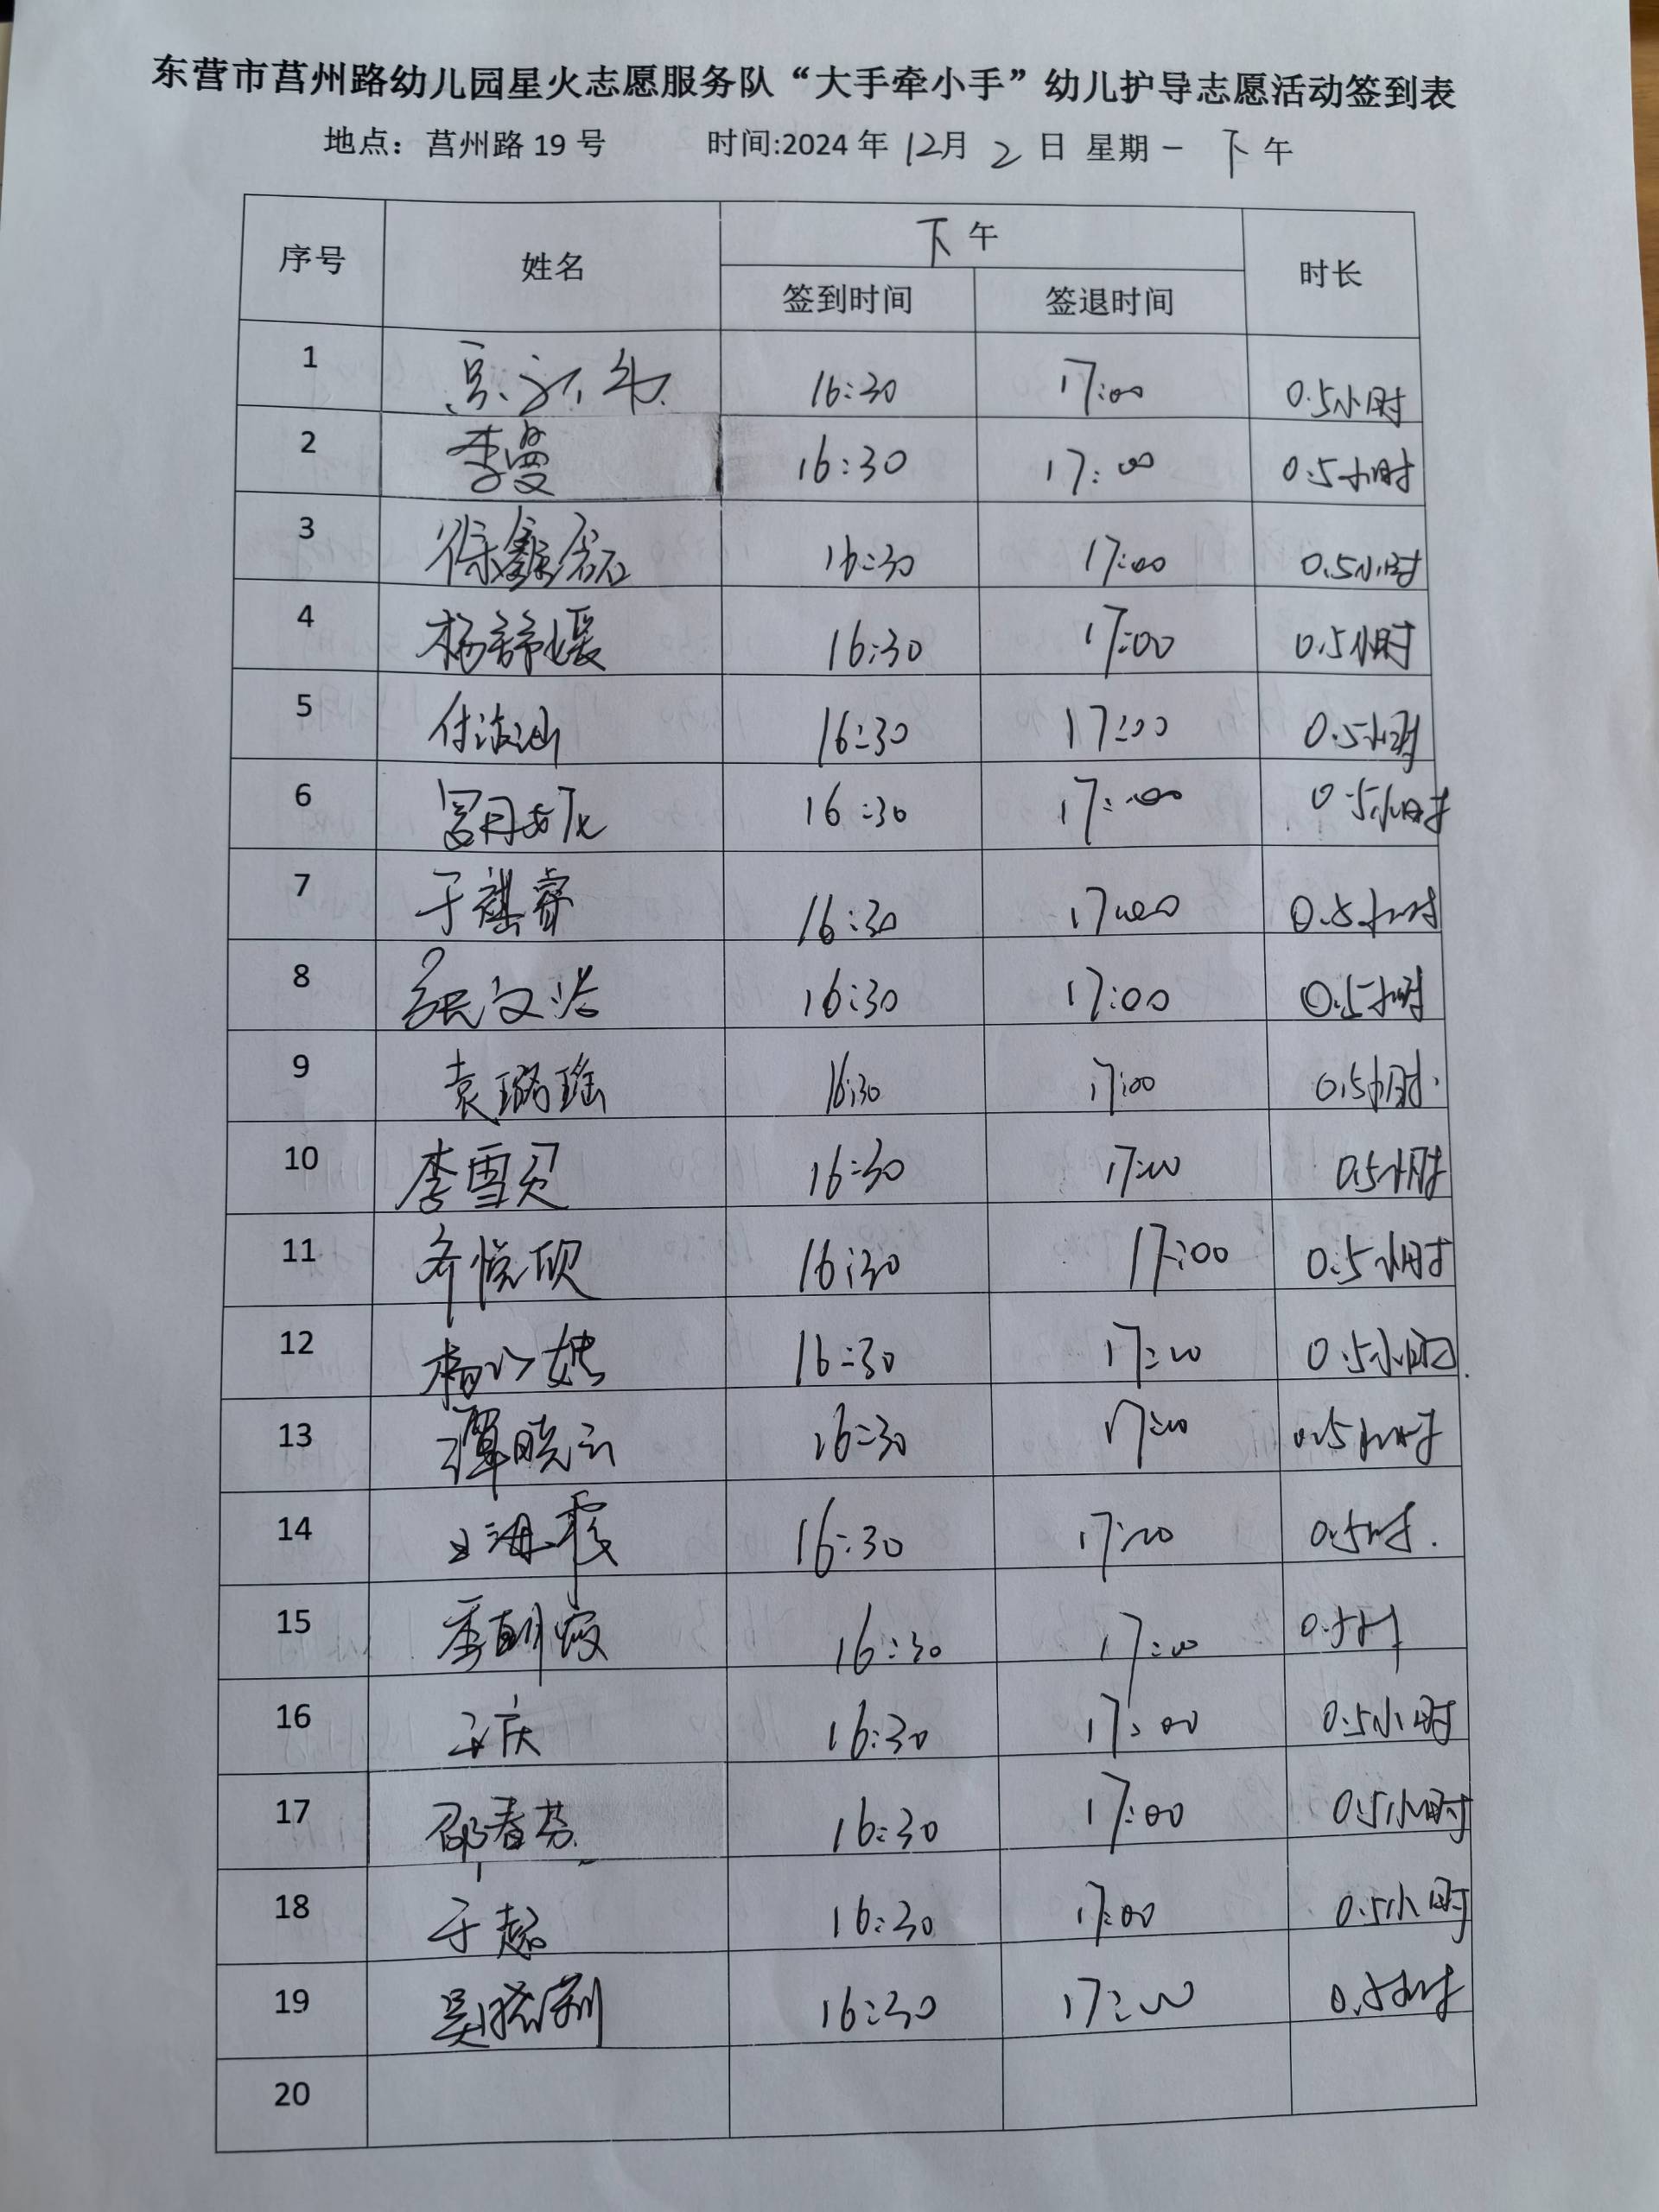 东营市莒州路幼儿园星火志愿服务队“大手牵小手”幼儿护导志愿活动签到表
地点：莒州路 19 号 时间:2024 年 12月 2 日 星期 一 下 午
序号 姓名 下 午 时长
签到时间 签退时间
1 16:30 17:00 0.5小时
2 李曼 16:30 17:00 0.5小时
3 徐鑫磊 16:30 17:00 0.5小时
4 杨舒媛 16:30 17:00 0.5小时
5 付 16:30 17:00 0.5小时
6 16:30 17:00 0.5小时
7 于祺睿 16:30 17:00 0.5小时
8 16:30 17:00 0.5小时
9 袁璐瑶 16:30 17:00 0.5小时
10 李雪贝 16:30 17:00 0.5小时
11 齐悦欣 16:30 17:00 0.5小时
12 16:30 17:00 0.5小时
13 谭晓云 16:30 17:00 0.5小时
14 王海霞 16:30 17:00 0.5时
15 季朝霞 16:30 17:00 0.5时
16 王庆 16:30 17:00 0.5小时
17 邵春芬 16:30 17:00 0.5小时
18 于超 16:30 17:00 0.5小时
19 吴晓莉 16:30 17:00 0.5小时
20